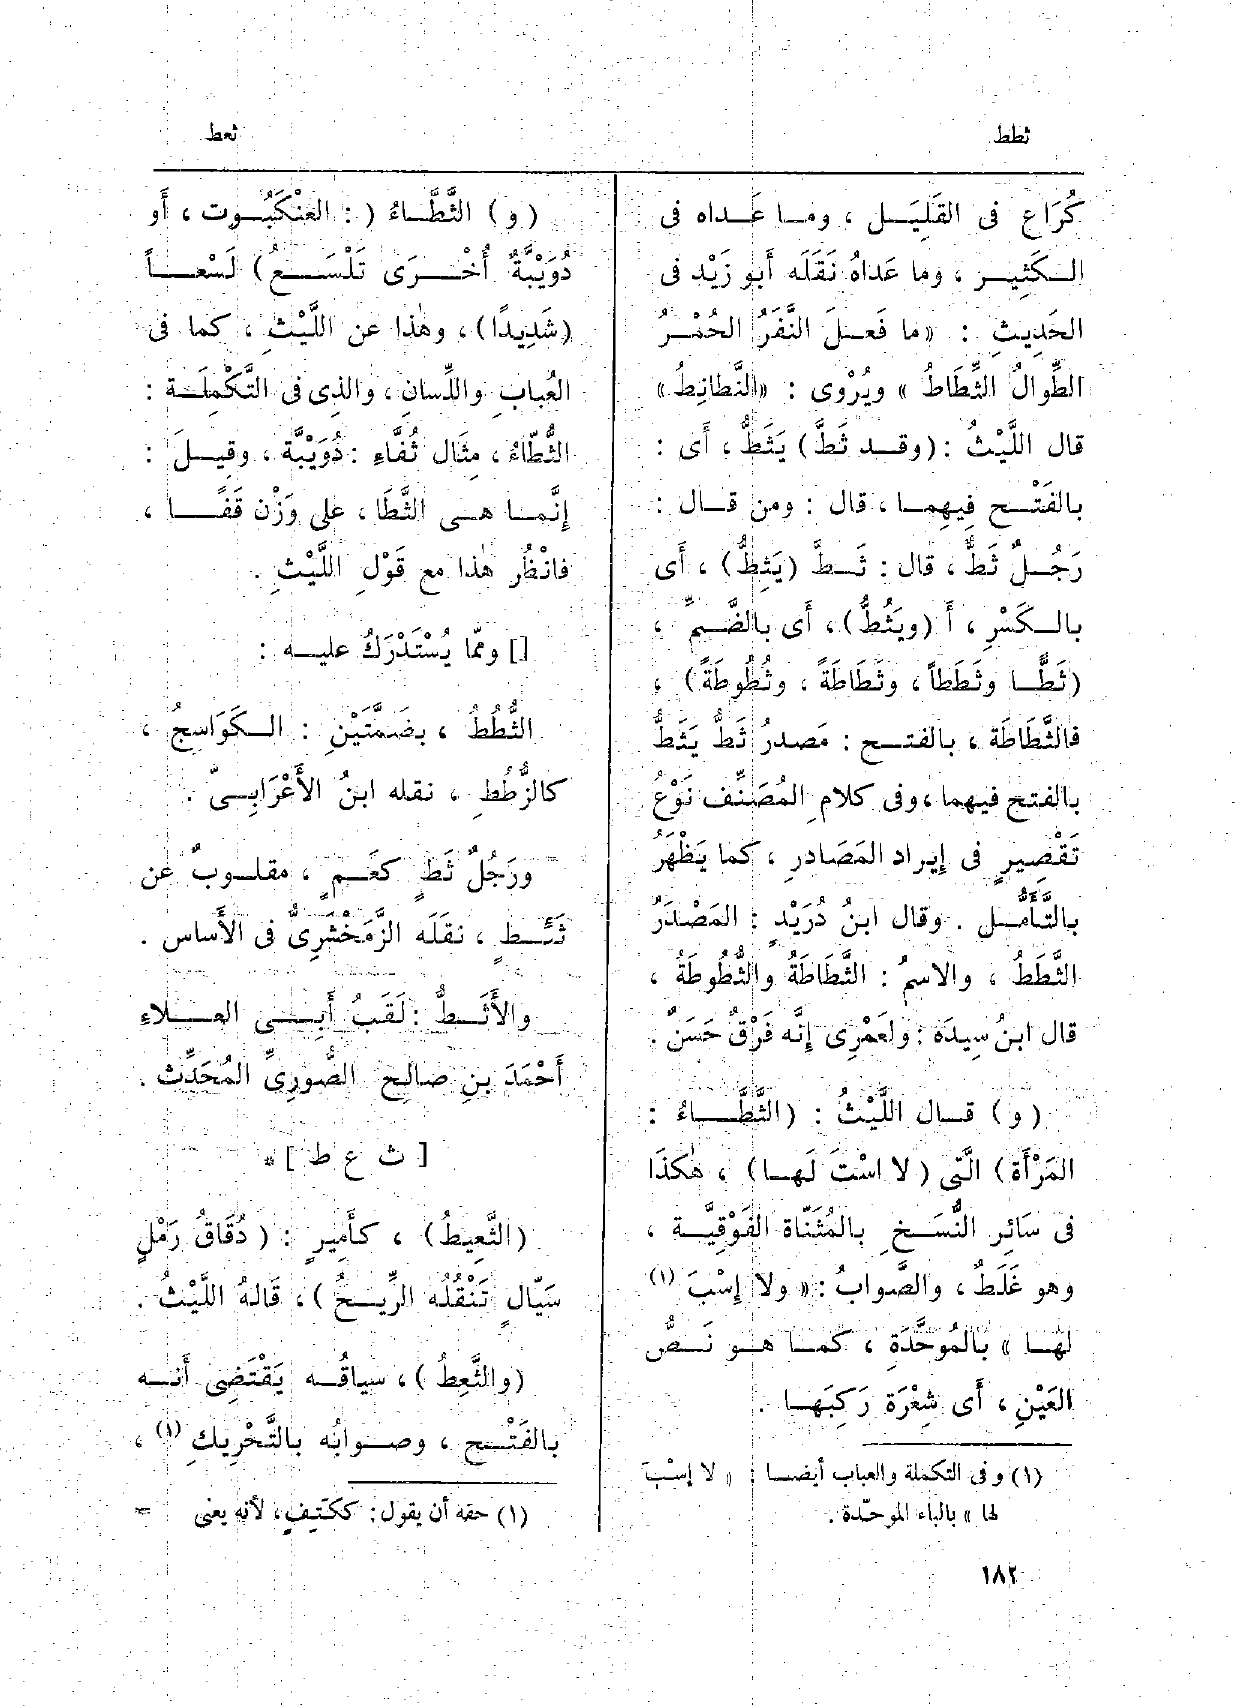 ثطط
ثعط
كُرَاع فى القَلِيَـل ، ومـا عَـداه فى
الـكَثِيـر ، وما عَداهُ نَقَلَه أَبو زَيْد فى
الحَدِيثِ : «ما فَعلَ النَّفَرُ الحُمْـرُ
الطِّوالُ الثِّطَاطُ» ويُرْوى : «النَّطانِطُ»
قال اللَّيْثُ : (وقـد ثَطَّ) يَثَطُّ ، أَى :
بالفَتْـح فِيهِمـا ، قال : ومن قـال :
رَجُـلٌ ثَطٌّ ، قال : ثَـطَّ (يَثِطُّ) ، أَى
بالـكَسْرِ ، أَ (ويَثُطُّ) ، أَى بالضَّـمِّ ،
(ثَطًّـا وثَطَطاً ، وثَطَاطَةً ، وثُطُوطَةً) ،
فالثَّطَاطَة ، بالفتـح : مَصدرُ ثَطَّ يَثَطُّ
بالفتح فيهما ، وفى كلامِ المُصَنِّف نَوْعُ
تَقْصِيرٍ فى إِيراد المَصَادرِ ، كما يَظْهَرُ
بالتَّأَمُّـل . وقال ابنُ دُرَيْدٍ : المَصْدَرُ
الثَّطَطُ ، والاسمُ : الثَّطَاطَةُ والثُّطُوطَةُ ،
قال ابنُ سِيدَه : ولَعَمْرِى إِنَّه فَرْقٌ حَسَنٌ .
(و) قـال اللَّيْثُ : (الثَّطَّـاءُ :
المَرْأَة) الَّتِى (لا اسْتَ لَهـا) ، هٰكَذَا
فى سَائِرِ النُّسَـخ بالمُثَنَّاة الفَوْقِيَّـة ،
وهو غَلَطٌ ، والصَّوابُ : «ولا إِسْبَ (١)
لهـا» بالمُوحَّدَةِ ، كمـا هـو نَـصُّ
العَيْنِ ، أَى شِعْرَة رَكِبَهـا .
(١) وفى التكملة والعباب أيضـا : «لا إسْبَ
لها» بالباء الموحّدة .
(و) الثَّطَّـاءُ ( : العَنْكَبُـوت ، أَو
دُوَيْبَّةٌ أُخْـرَى تَلْسَـعُ) لَسْعـاً
(شَدِيدًا) ، وهٰذا عن اللَّيْثِ ، كما فى
العُبابِ واللِّسانِ ، والذِى فى التَّكْمِلَـة :
الثُّطَّاءُ ، مِثَال ثُفَّاءِ : دُوَيْبَّة ، وقِيـلَ :
إِنَّمـا هـى الثَّطَا ، على وَزْن قَفًـا ،
فانْظُر هٰذا مع قَوْلِ اللَّيْثِ .
[] وممّا يُسْتَدْرَكُ عليـه :
الثُّطُطُ ، بضَمَّتَيْنِ : الـكَوَاسِجُ ،
كالزُّطُطِ ، نقله ابنُ الأَعْرَابِـىّ .
ورَجُلٌ ثَطٍ كعَـمٍ ، مقلـوبٌ عن
ثَئِـطٍ ، نقَلَه الزَّمَخْشَرِىُّ فى الأَساس .
والأَثَـطُّ : لَقَبُ أَبِـى العـلاءِ
أَحْمَدَ بنِ صالِح الصُّورِىِّ المُحَدِّث .
[ ث ع ط ] *
(الثَّعِيطُ) ، كأَمِيرٍ : (دُقَاقُ رَمْلٍ
سَيّالٍ تَنْقُلُه الرِّيـحُ) ، قَالهُ اللَّيْثُ .
(والثَّعِطُ) ، سياقُـه يَقْتَضِى أَنـه
بالفَتْـح ، وصـوابُه بالتَّحْرِيكِ (١) ،
(١) حقه أن يقول : ككَتِيفٍ ، لأنه يعنى =
١٨٢